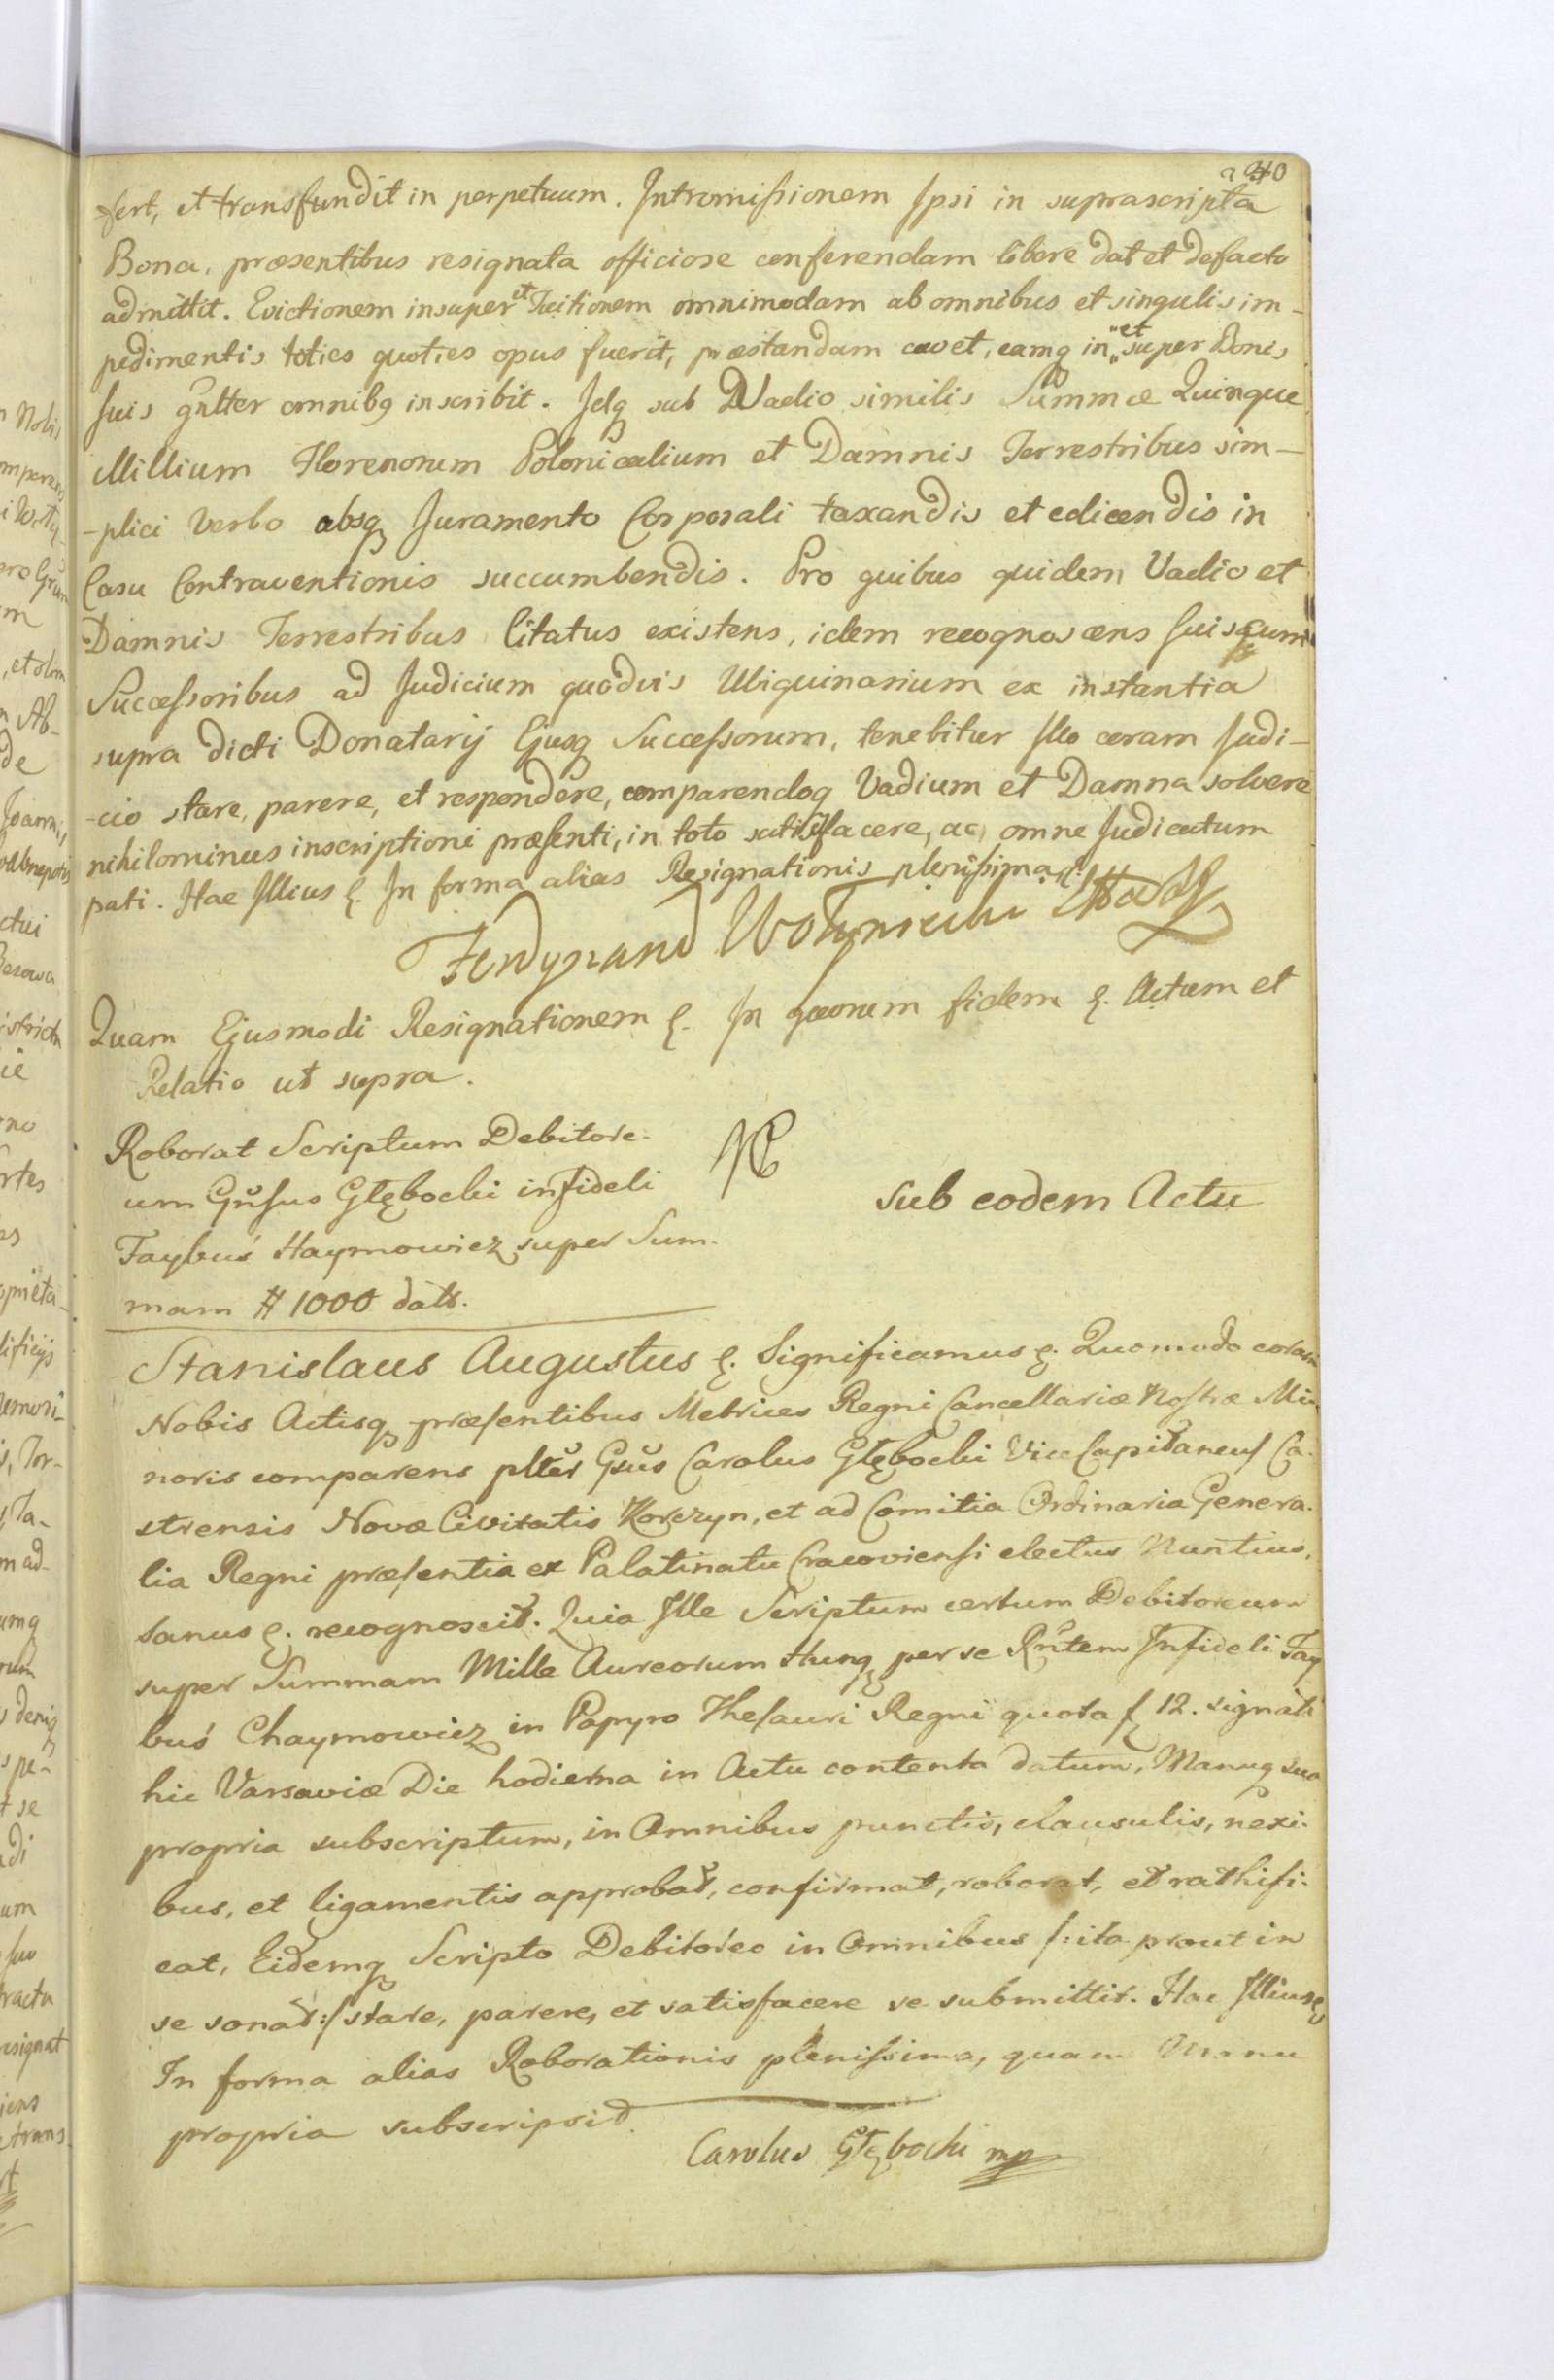 240
fert, et transfundit in perpetuum. Intromissionem Ipsi in suprascripta
Bona, præsentibus resignata officiose conferendam libere dat et defacto
admittit. Evictionem insuper et Tuitionem omnimodam ab omnibus et singulis im-
pedimentis toties quoties opus fuerit, præstandam cavet, eamq in et super Bonis
suis gnlter omnibq inscribit. Idq sub Vadio similis Summæ Quinque
Millium Florenorum Polonicalium et Damnis Terrestribus sim-
-plici Verbo absq Juramento Corporali taxandis et edicendis in
Casu Contraventionis succumbendis. Pro quibus quidem Vadio et
Damnis Terrestribus Citatus existens, idem recognoscens suis cum
Successoribus ad Judicium quodvis Ubiquinarium ex instantia
supra dicti Donatarij Ejusq Successorum, tenebitur Illo coram Judi-
-cio stare, parere, et respondere, comparendoq Vadium et Damna solvere
nihilominus inscriptioni præsenti, in toto satisfacere, ac omne Judicatum
pati. Hac Illius &. In forma alias Resignationis plenissima &.
Ferdynand
Quam Ejusmodi Resignationem &. In quorum fidem &. Actum et
Relatio ut supra.
Roborat Scriptum Debitore-
um Gnsus Głębocki infideli
Faybuś Haymowicz super Sum-
mam # 1000 dats.
sub eodem Actu
Stanislaus Augustus &. Significamus &. Quomodo coram
Nobis Actisq præsentibus Metrices Regni Cancellariæ Nostræ Mi-
noris comparens plter Gsus Carolus Głębocki Vice Capitaneus Ca-
strensis Novæ Civitatis Korczyn, et ad Comitia Ordinaria Genera-
lia Regni præsentia ex Palatinatu Cracoviensi electus Nuntius,
sanus &. recognoscit. Quia Ille Scriptum certum Debitoreum
super Summam Mille Aureorum Hung per se Rntem Infideli Fay
buś Chaymowicz in Papyro Thesauri Regni quota f 12. signati
hic Varsaviæ Die hodierna in Actu contenta datum, Manuq sua
propria subscriptum, in Omnibus punctis, clausulis, nexi-
bus, et ligamentis approbat, confirmat, roborat, et rathifi-
cat, Eidemq Scripto Debitoreo in Omnibus /: ita prout in
se sonat :/ stare, parere, et satisfacere se submittit. Hac Illius &
In forma alias Roborationis plenissima, quam Manu
propria subscripsit.
Carolus Głębocki mp